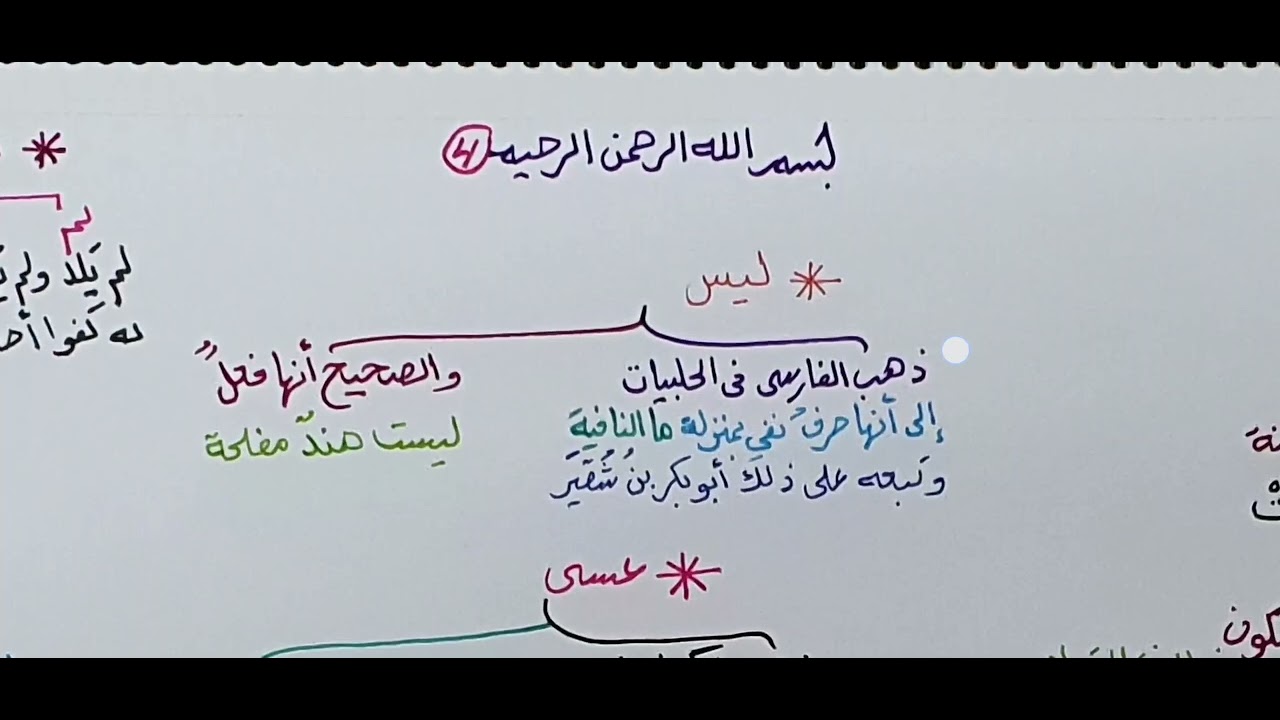 بسم الله الرحمن الرحيم ٤
* ليس
ذهب الفارسى فى الحلبيات
إلى أنها حرفُ نفيٍ بمنزلة ما النافيةِ
وتبعه على ذلك أبو بكر بنُ شُقَيْرَ
والصحيح أنها فعلٌ
ليست هندٌ مفلحة
* عسى
*
لم
لم يَلِد ولم
له كفوا